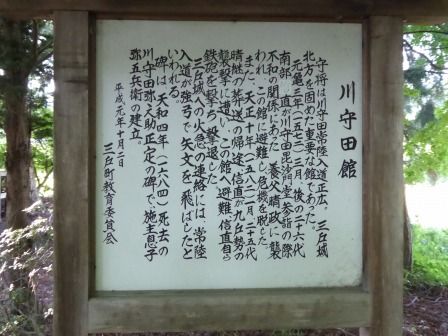 川守田館
守将は川守田常陸入道正広。三戸城
北方を固めた重要な館であった。
元亀三年（一五七二）三月、後の二十六代
南部信直が川守田毘沙門堂参詣の際
不和の関係にあった養父晴政に襲
われ、この館に避難し危機を脱した。
また、天正十年（一五八二）一月二十五代
晴継の葬送の帰途、信直が九戸勢の
襲撃に遭い、この館へ避難、信直自ら
鉄砲を一撃ち、撃退した。
三戸城への急の連絡には、常陸
入道が強弓で矢文を飛ばしたと
いわれる。
碑は、天和四年（一六八四）死去の
川守田弥之助正定の碑で、施主息子
弥五兵衛の建立。
平成元年十月二日
三戸町教育委員会